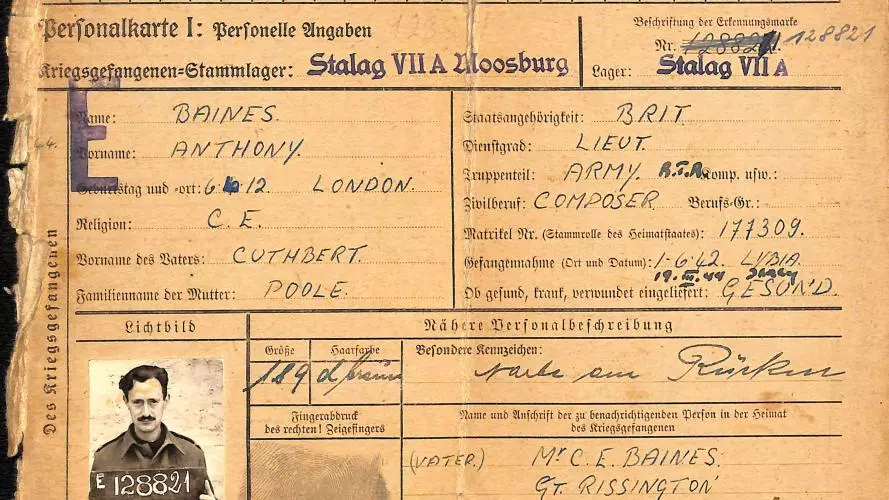 Personalkarte I: Personelle Angaben
Kriegsgefangenen-Stammlager: Stalag VII A Moosburg
Beschriftung der Erkennungsmarke
Nr. 128821
Lager: Stalag VII A
E
Name: BAINES.
Vorname: ANTHONY.
Geburtstag und -ort: 6 12 LONDON.
Religion: C. E.
Vorname des Vaters: CUTHBERT.
Familienname der Mutter: POOLE.
Staatsangehörigkeit: BRIT
Dienstgrad: LIEUT.
Truppenteil: ARMY. R.T.R. Komp. usw.:
Zivilberuf: COMPOSER Berufs-Gr.:
Matrikel Nr. (Stammrolle des Heimatstaates): 177309.
Gefangennahme (Ort und Datum): 1-6-42. LYBIA.
19. III. 44
Ob gesund, krank, verwundet eingeliefert: GESUND.
Des Kriegsgefangenen
Lichtbild
Nähere Personalbeschreibung
Größe
189
Haarfarbe
d/braun
Besondere Kennzeichen:
Narbe am Rücken
Fingerabdruck
des rechten! Zeigefingers
Name und Anschrift der zu benachrichtigenden Person in der Heimat
des Kriegsgefangenen
(VATER.) Mr C. E. BAINES.
GT. RISSINGTON
E 128821